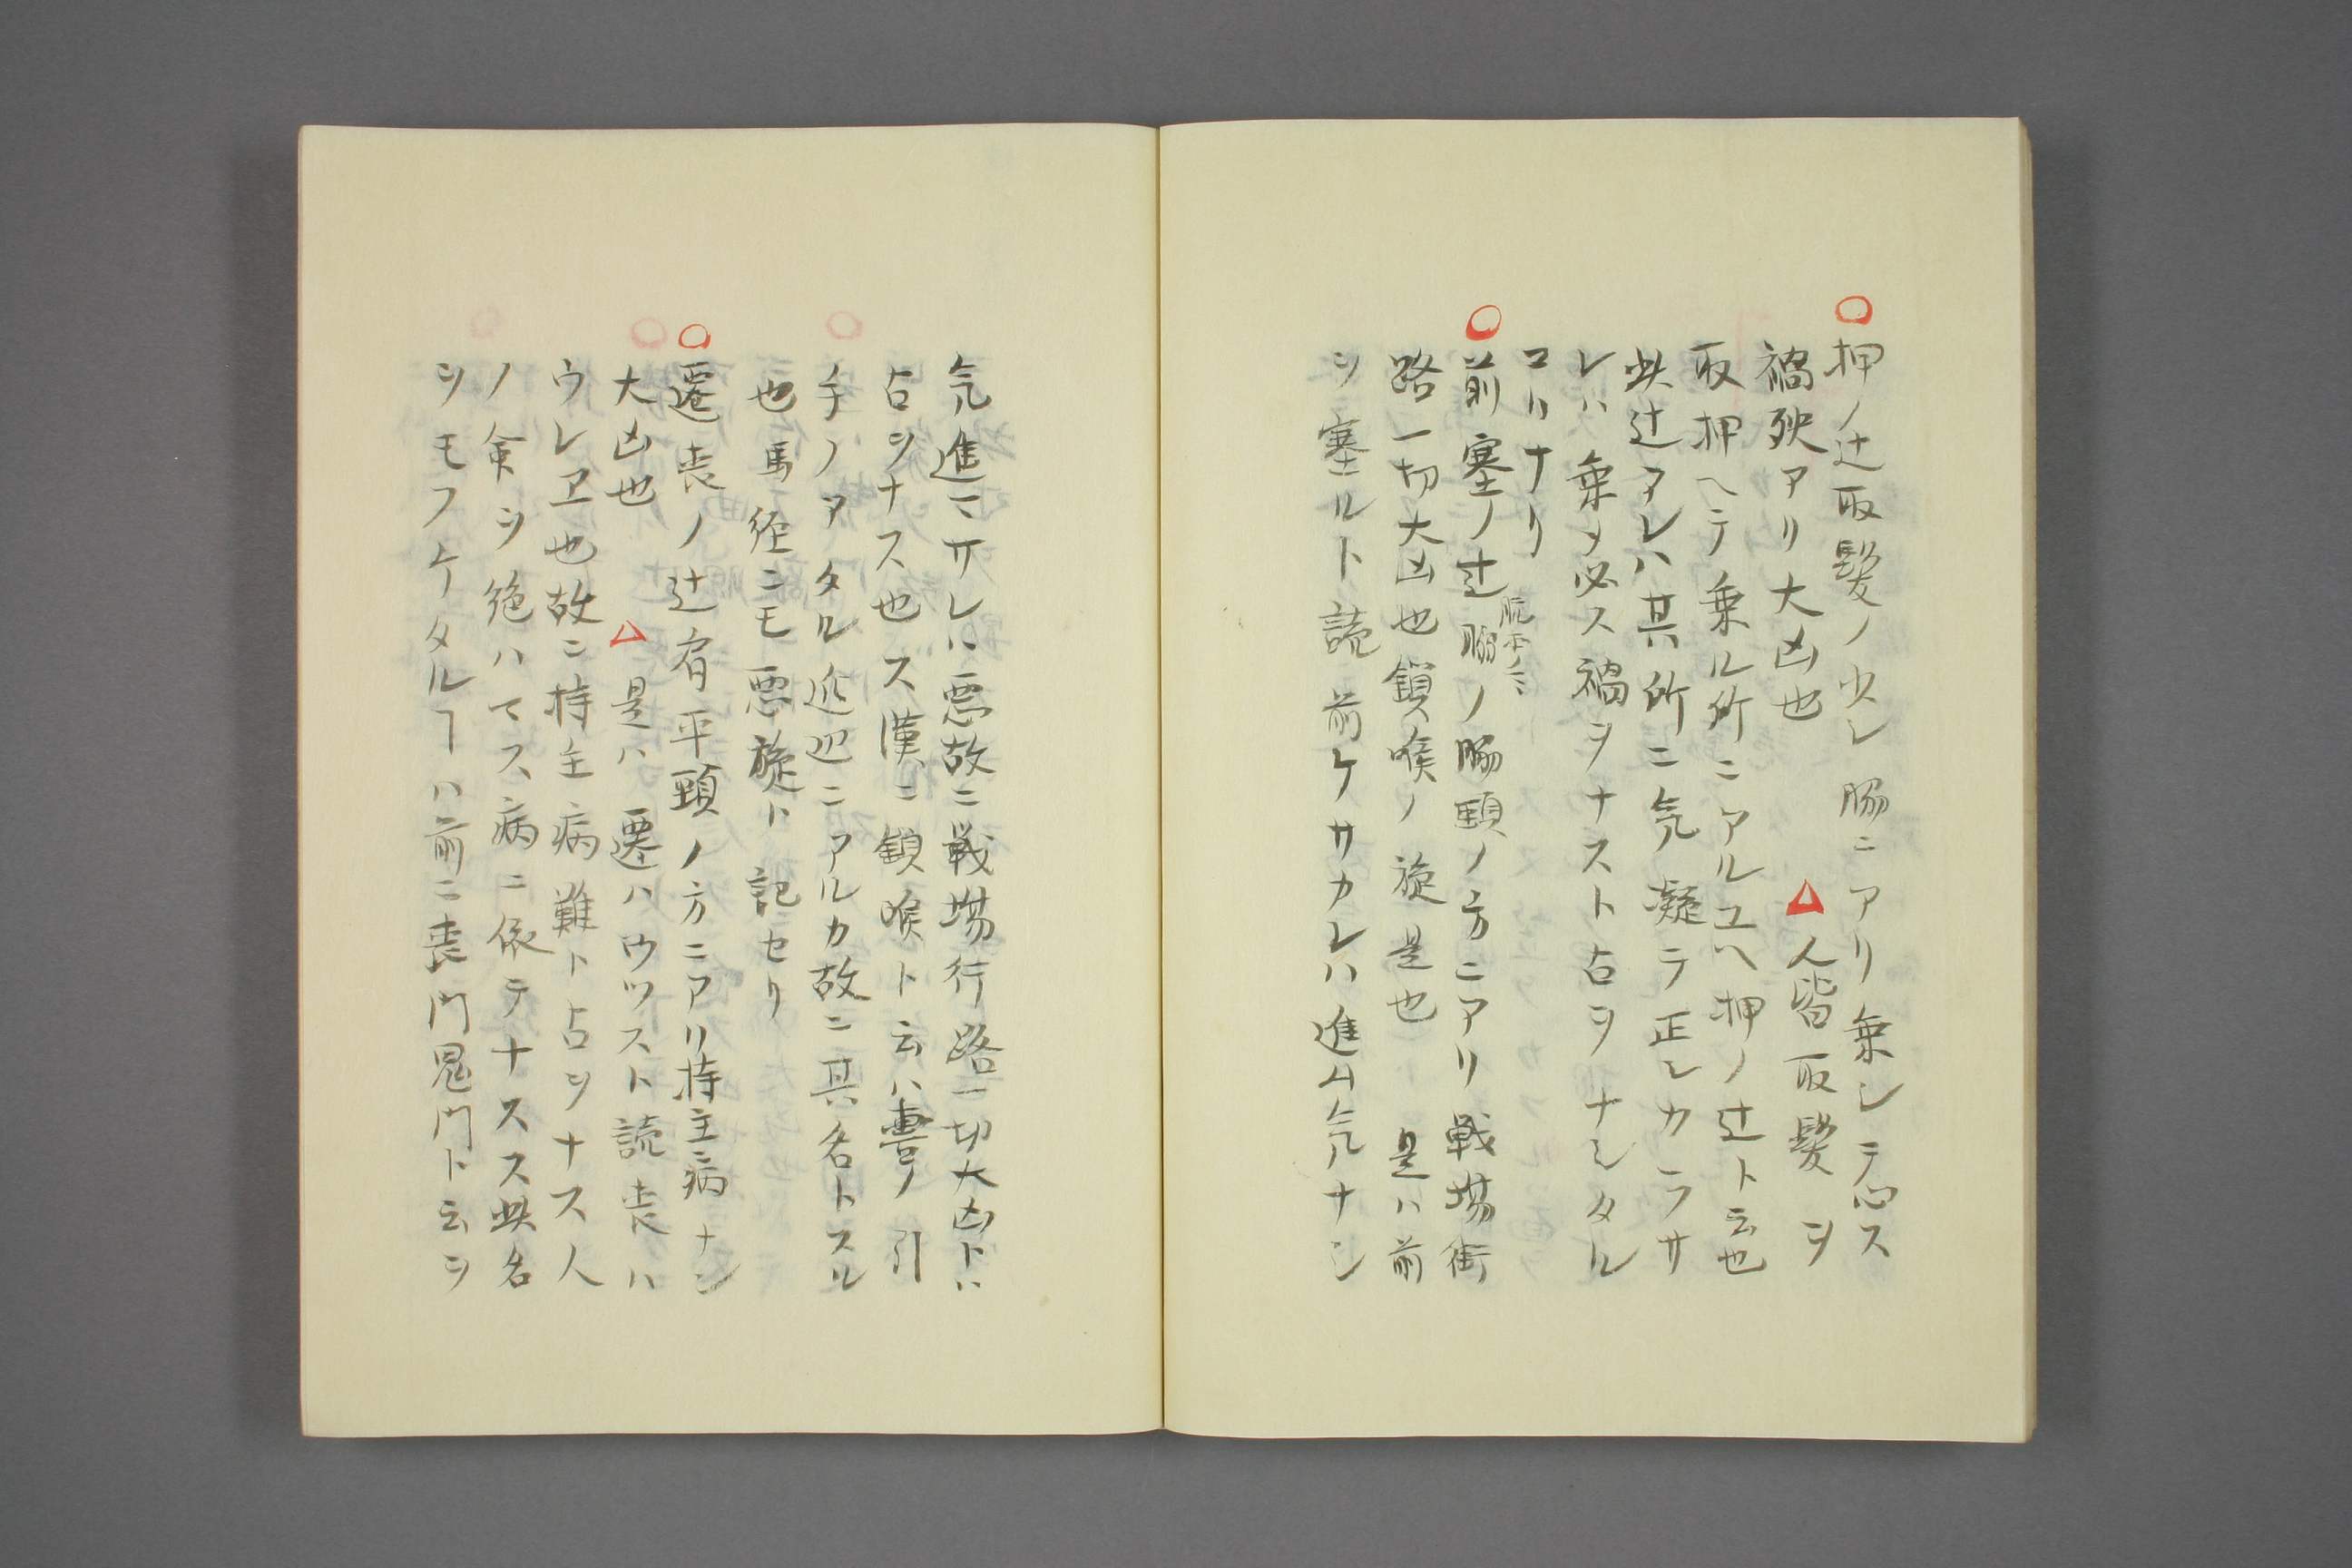 ○押ノ辻取髪ノ少シ脇ニアリ乗シテ必ス
禍殃アリ大凶也 △人皆取髪ヲ
取押ヘテ乗ル所ニアルユヘ押ノ辻ト云也
此辻アレハ其所ニ気凝テ正シカラサ
レハ乗メ必ス禍ヲナスト占ヲナシタル
コリナリ
○前塞ノ辻胸ノ脇頸ノ方ニアリ戦場街
路一切大凶也鎖喉ノ旋是也 是ハ前
ヲ塞ルト読前ケサカレハ進ム気ナシ
気進マサレハ悪故ニ戦場行路一切大凶トハ
占ヲナス也ス漢ニ鎖喉ト云ハ轡ノ引
手ノアタル近辺ニアルカ故ニ其名トスル
也馬經ニモ悪旋ト記セリ
○遷喪ノ辻肩平頸ノ方ニアリ持主病ナン
大凶也 △是ハ遷ハウツスト読喪ハ
ウレヱ也故ニ持主病難ト占ヲナス人
ノ命ヲ絶ハテス病ニ依テナスス此名
ヲモフケタルヿハ前ニ喪門鬼門ト云ヲ